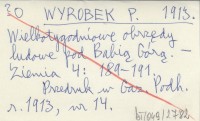 30 WYROBEK P. 1913.
Wielkotygodniowe obrzędy
ludowe pod Babią Górą. –
Ziemia 4: 189-191.
Przedruk w Gaz. Podh.
r. 1913, nr 14.